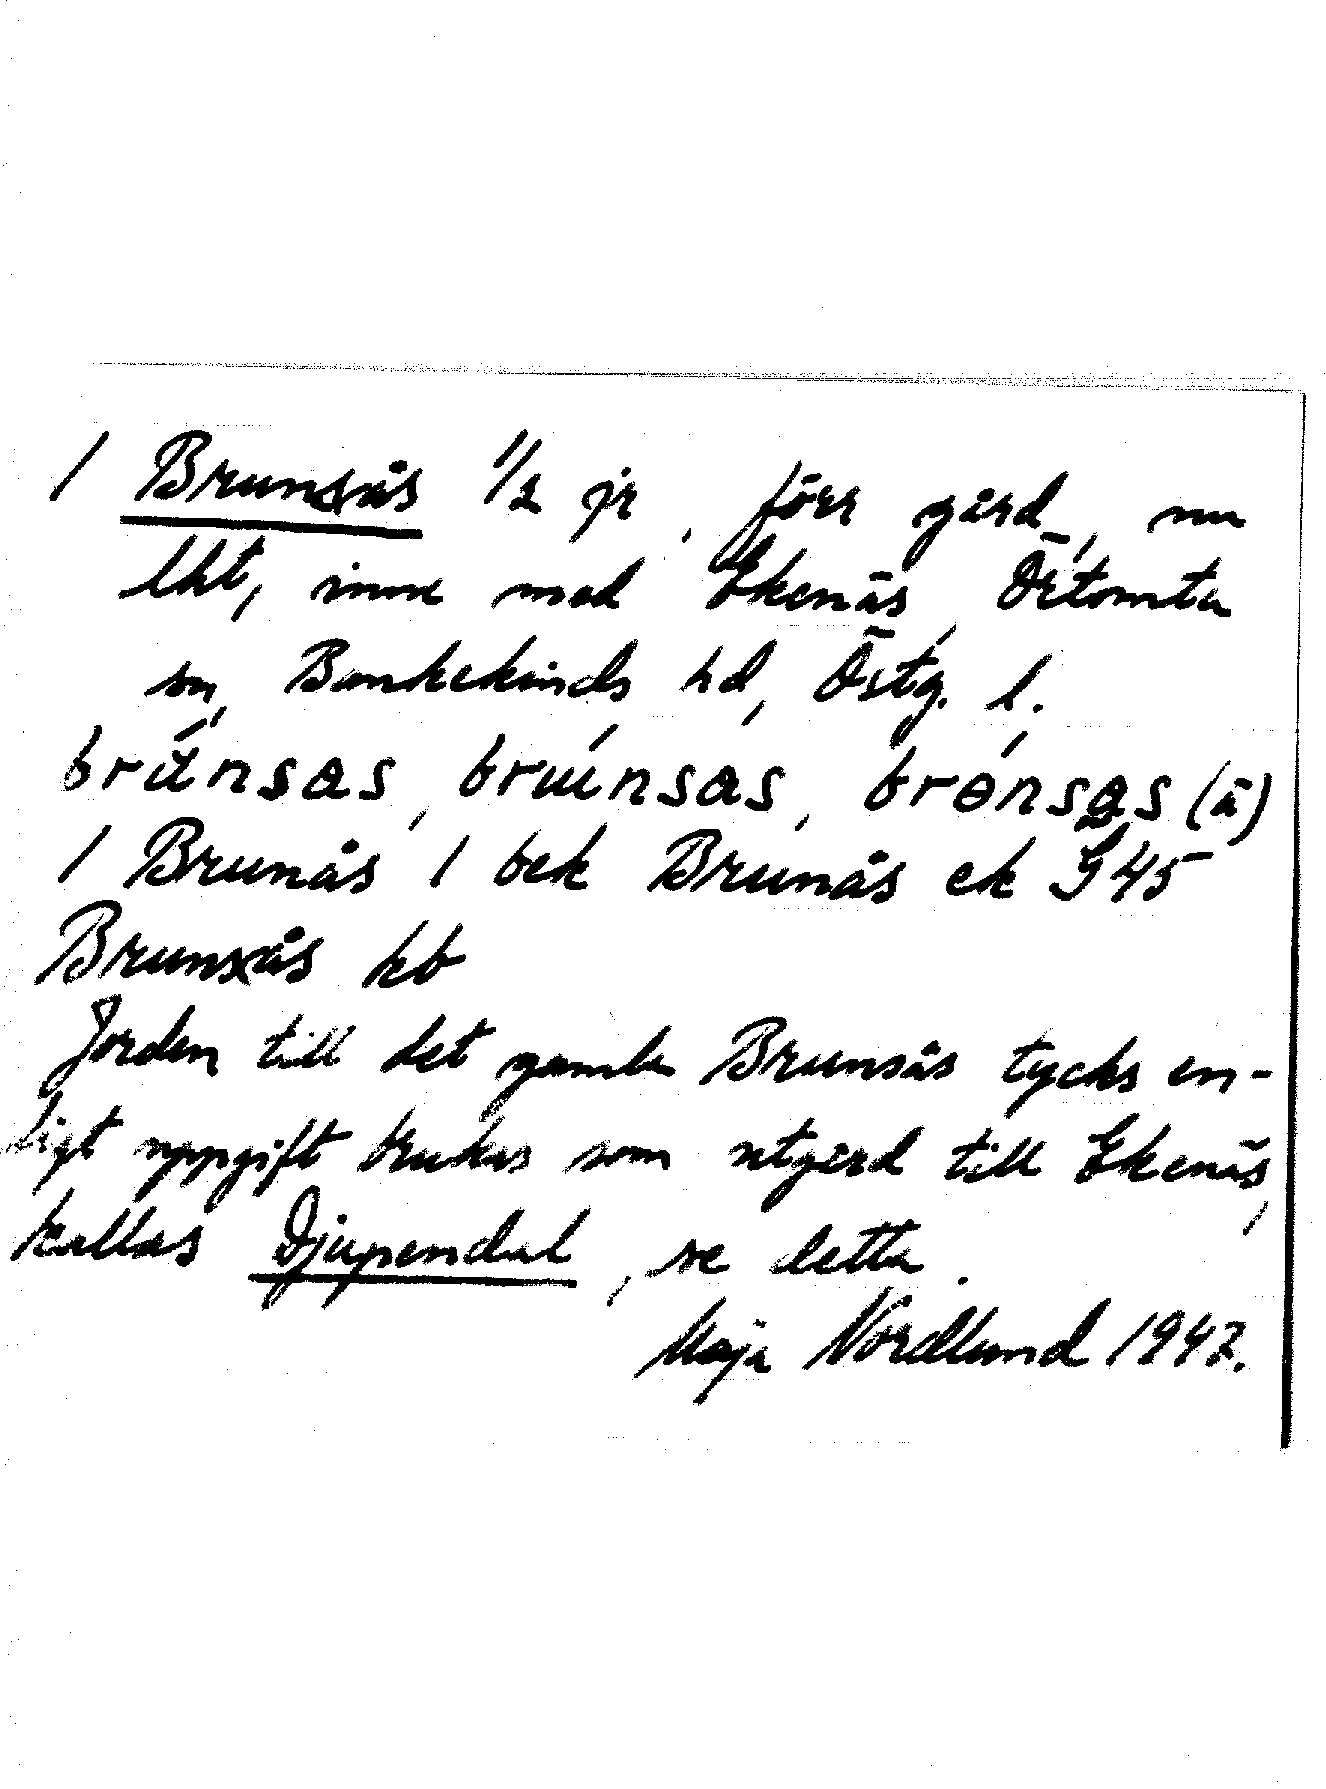 / Brunsås 1/2 jr, förr gård, nu
lht, inne med Ekenäs, Örtomta
sn, Bankekinds hd, Östg. l.
brúnsas, bruúnsas, brɵ́nsas (ä)
/ Brunås / bek Brunås ek G 45
Brunsås kb
Jorden till det gamla Brunsås tycks en-
ligt uppgift brukas som utgärd till Ekenäs,
kallas Djupendal, se detta.
Maja Nordlund 1947.